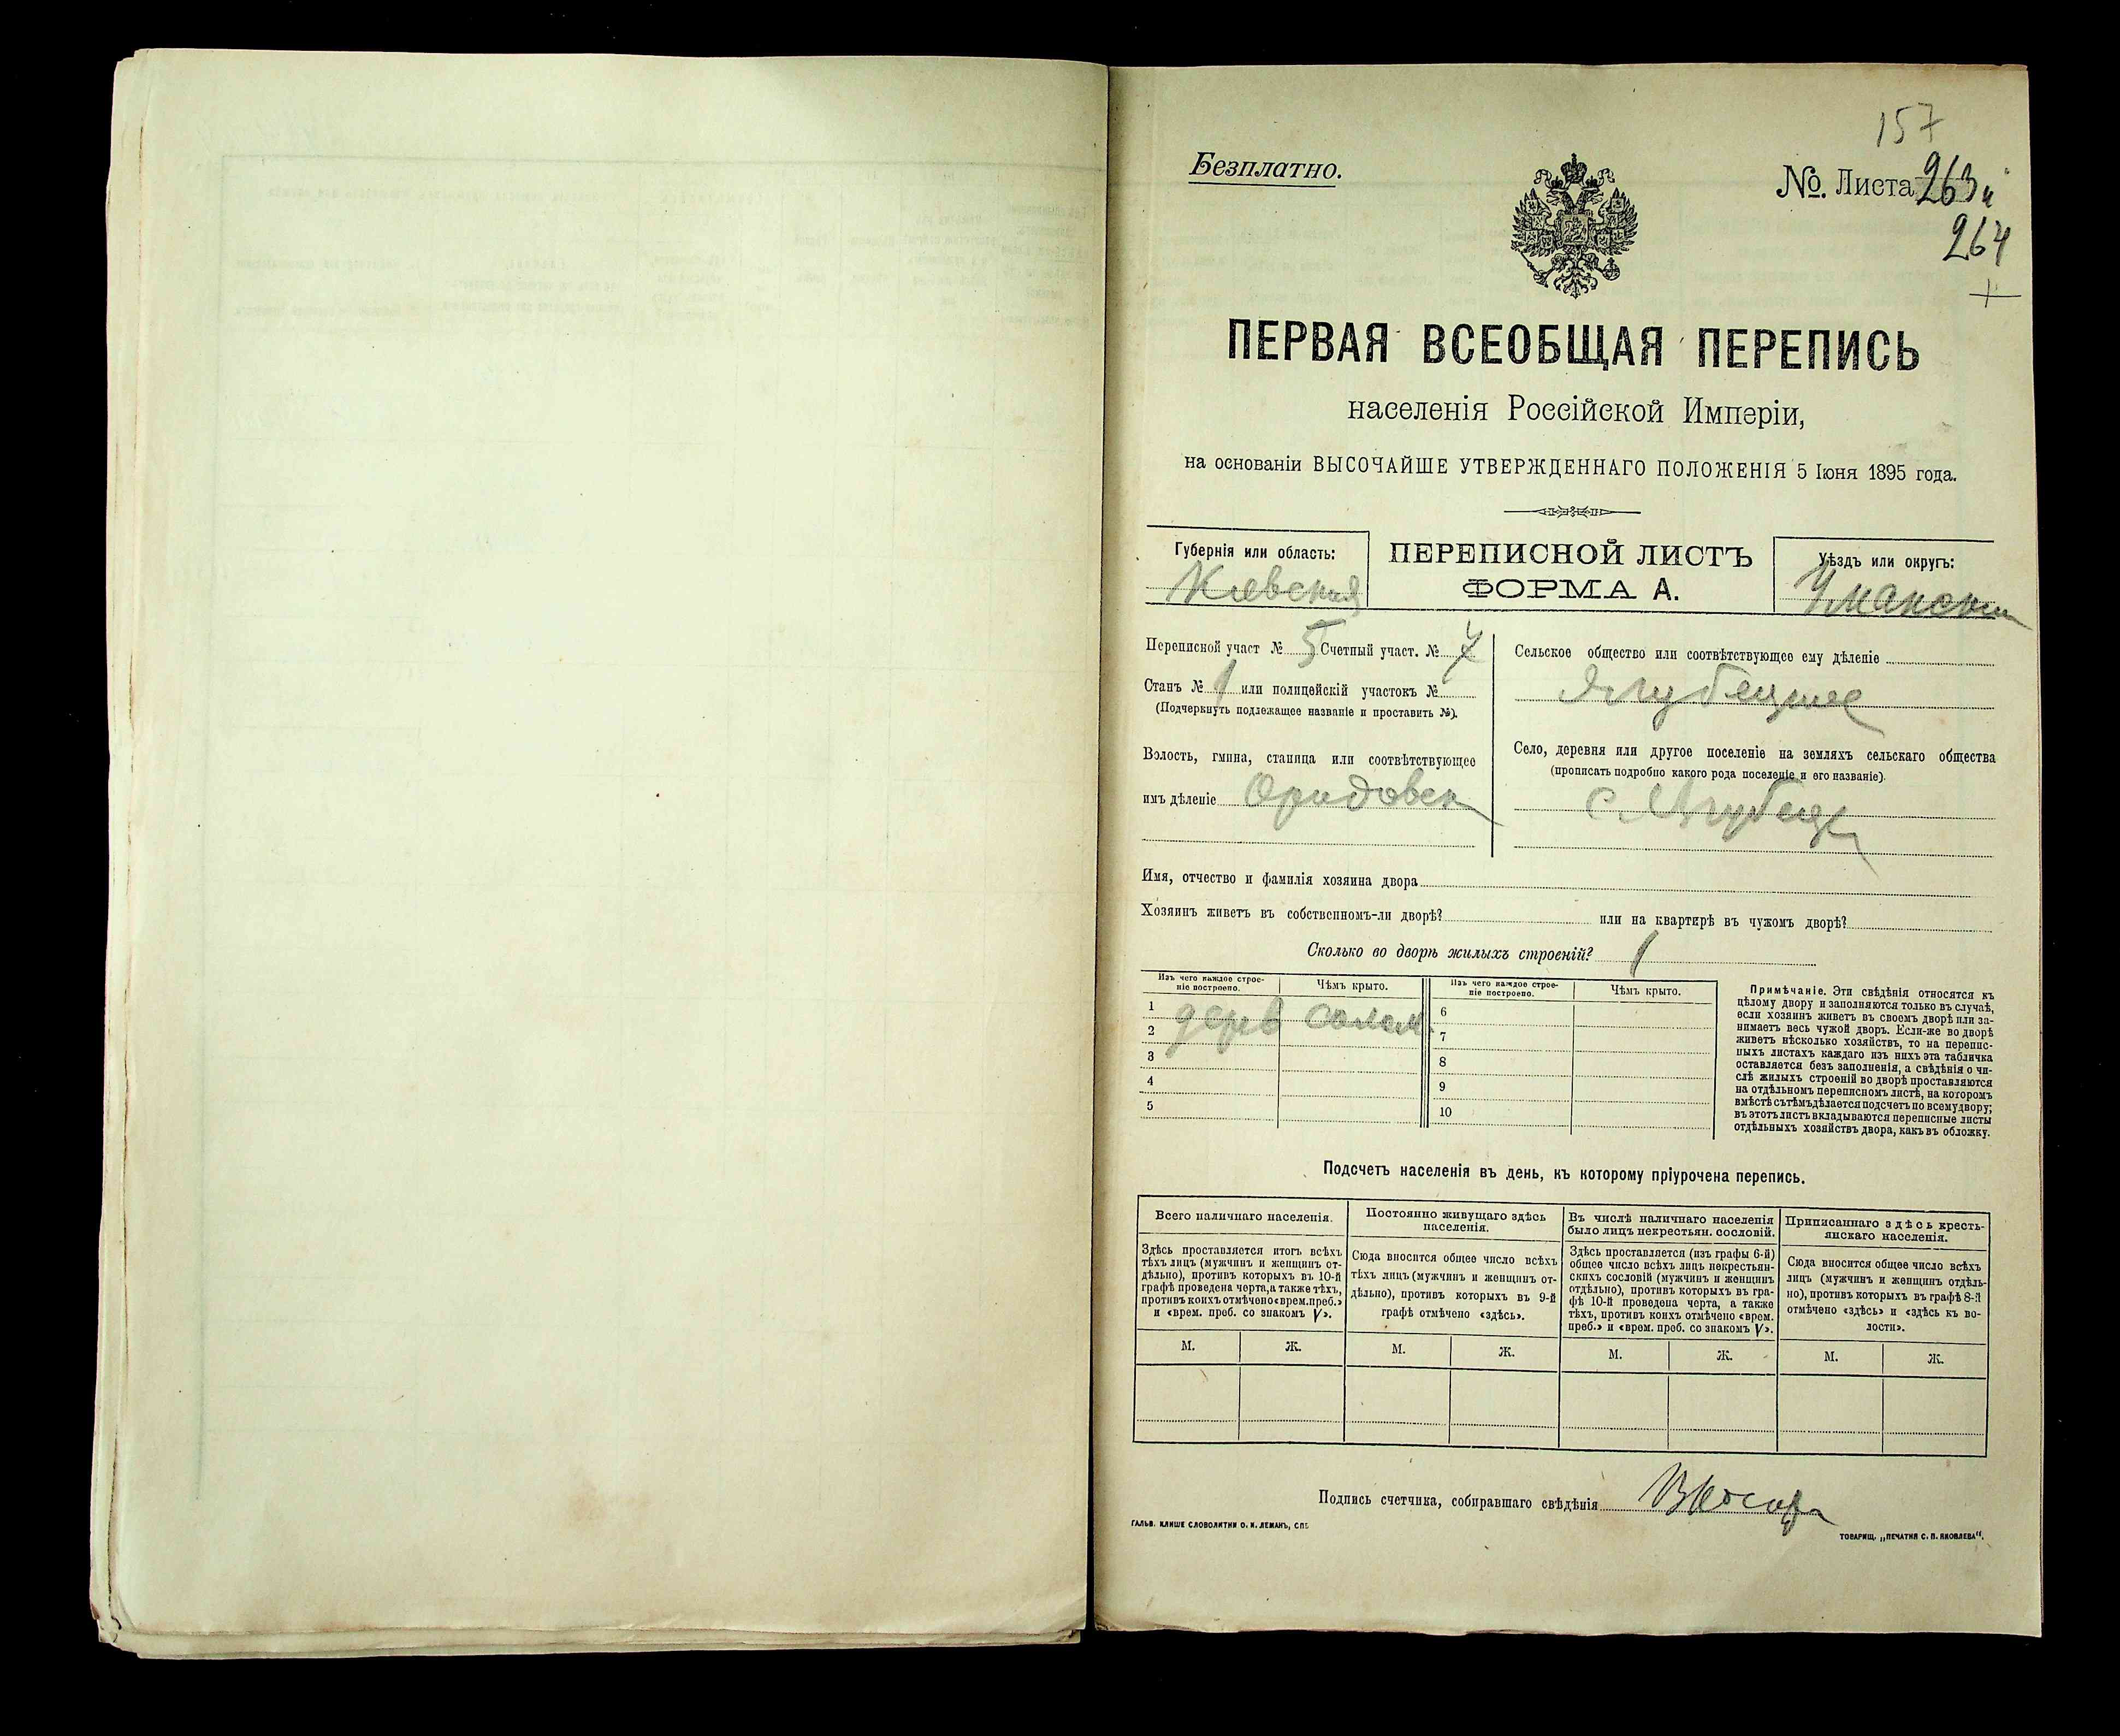 157
Безплатно.
№. Листа 263 и
264
ПЕРВАЯ ВСЕОБЩАЯ ПЕРЕПИСЬ
населенія Россійской Имперіи,
на основаніи ВЫСОЧАЙШЕ УТВЕРЖДЕННАГО ПОЛОЖЕНІЯ 5 Іюня 1895 года.
Губернія или область:
Кіевская
ПЕРЕПИСНОЙ ЛИСТЪ
ФОРМА А.
Уѣздъ или округъ:
Уманскій
Переписной участ № 5 Счетный участ. №
Станъ № 1 или полицейскій участокъ №
(Подчеркнуть подлежащее названіе и проставить №).
Волость, гмина, станица или соотвѣтствующее
имъ дѣленіе
Сельское общество или соотвѣтствующее ему дѣленіе
Ягубецкое
Село, деревня или другое поселеніе на земляхъ сельскаго общества
(прописать подробно какого рода поселеніе и его названіе).
с. Ягубец
Имя, отчество и фамилія хозяина двора
Хозяинъ живетъ въ собственномъ-ли дворѣ? или на квартирѣ въ чужомъ дворѣ?
Сколько во дворѣ жилыхъ строеній? 1
Изъ чего каждое строе-
ніе построено.
Чѣмъ крыто.
Изъ чего каждое строе-
ніе построено.
Чѣмъ крыто.
1 дерев солом.
2
3
4
5
6
7
8
9
10
Примѣчаніе. Эти свѣдѣнія относятся къ
цѣлому двору и заполняются только въ случаѣ,
если хозяинъ живетъ въ своемъ дворѣ или за-
нимаетъ весь чужой дворъ. Если-же во дворѣ
живетъ нѣсколько хозяйствъ, то на перепис-
ныхъ листахъ каждаго изъ нихъ эта табличка
оставляется безъ заполненія, а свѣдѣнія о чи-
слѣ жилыхъ строеній во дворѣ проставляются
на отдѣльномъ переписномъ листѣ, на которомъ
вмѣстѣ съ тѣмъ дѣлается подсчетъ по всему двору;
въ этотъ листъ вкладываются переписные листы
отдѣльныхъ хозяйствъ двора, какъ въ обложку.
Подсчетъ населенія въ день, къ которому пріурочена перепись.
Всего наличнаго населенія.
Здѣсь проставляется итогъ всѣхъ
тѣхъ лицъ (мужчинъ и женщинъ от-
дѣльно), противъ которыхъ въ 10-й
графѣ проведена черта, а также тѣхъ,
противъ коихъ отмѣчено «врем. преб.»
и «врем. преб. со знакомъ V».
М. Ж.
Постоянно живущаго здѣсь
населенія.
Сюда вносится общее число всѣхъ
тѣхъ лицъ (мужчинъ и женщинъ от-
дѣльно), противъ которыхъ въ 9-й
графѣ отмѣчено «здѣсь».
М. Ж.
Въ числѣ наличнаго населенія
было лицъ некрестьян. сословій.
Здѣсь проставляется (изъ графы 6-й)
общее число всѣхъ лицъ некрестьян-
скихъ сословій (мужчинъ и женщинъ
отдѣльно), противъ которыхъ въ гра-
фѣ 10-й проведена черта, а также
тѣхъ, противъ коихъ отмѣчено «врем.
преб.» и «врем. преб. со знакомъ V».
М. Ж.
Приписаннаго здѣсь кресть-
янскаго населенія.
Сюда вносится общее число всѣхъ
лицъ (мужчинъ и женщинъ отдѣль-
но), противъ которыхъ въ графѣ 8-й
отмѣчено «здѣсь» и «здѣсь къ во-
лости».
М. Ж.
Подпись счетчика, собиравшаго свѣдѣнія
ГАЛЬВ. КЛИШЕ СЛОВОЛИТНИ О. И. ЛЕМАНЪ, СПБ
ТОВАРИЩ. „ПЕЧАТНЯ С. П. ЯКОВЛЕВА“.